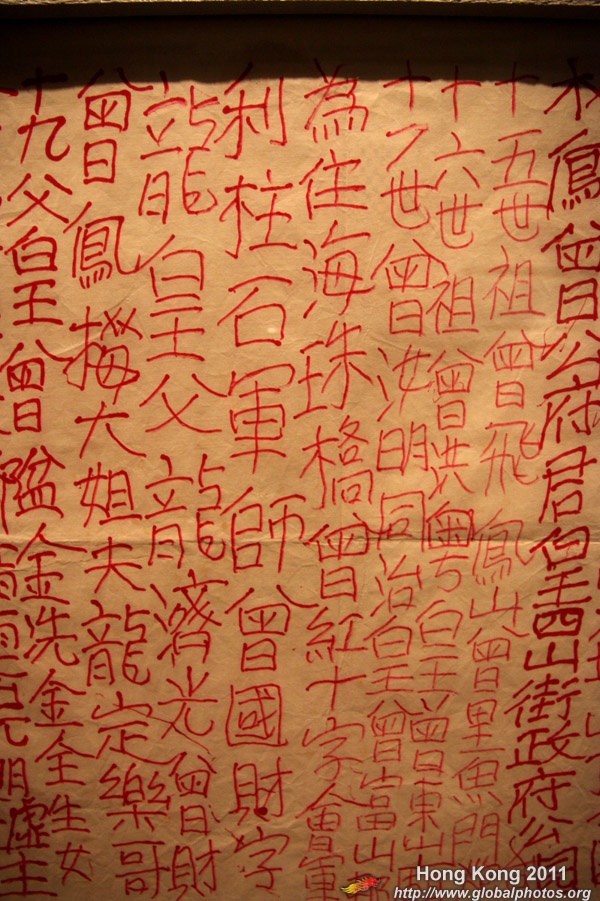 鳳曾公府君皇四山街政府公
十五世祖曾飛鳳山曾里魚門
十六世祖曾洪粵皇曾東山
十八世曾汝明同治皇曾富山
為住海珠橋曾紅十字會軍
利柱石軍師曾國財字
龍皇父龍濟光曾財
曾鳳大姐夫龍定樂哥
十九父皇曾金洗金全生女
Hong Kong 2011
http://www.globalphotos.org